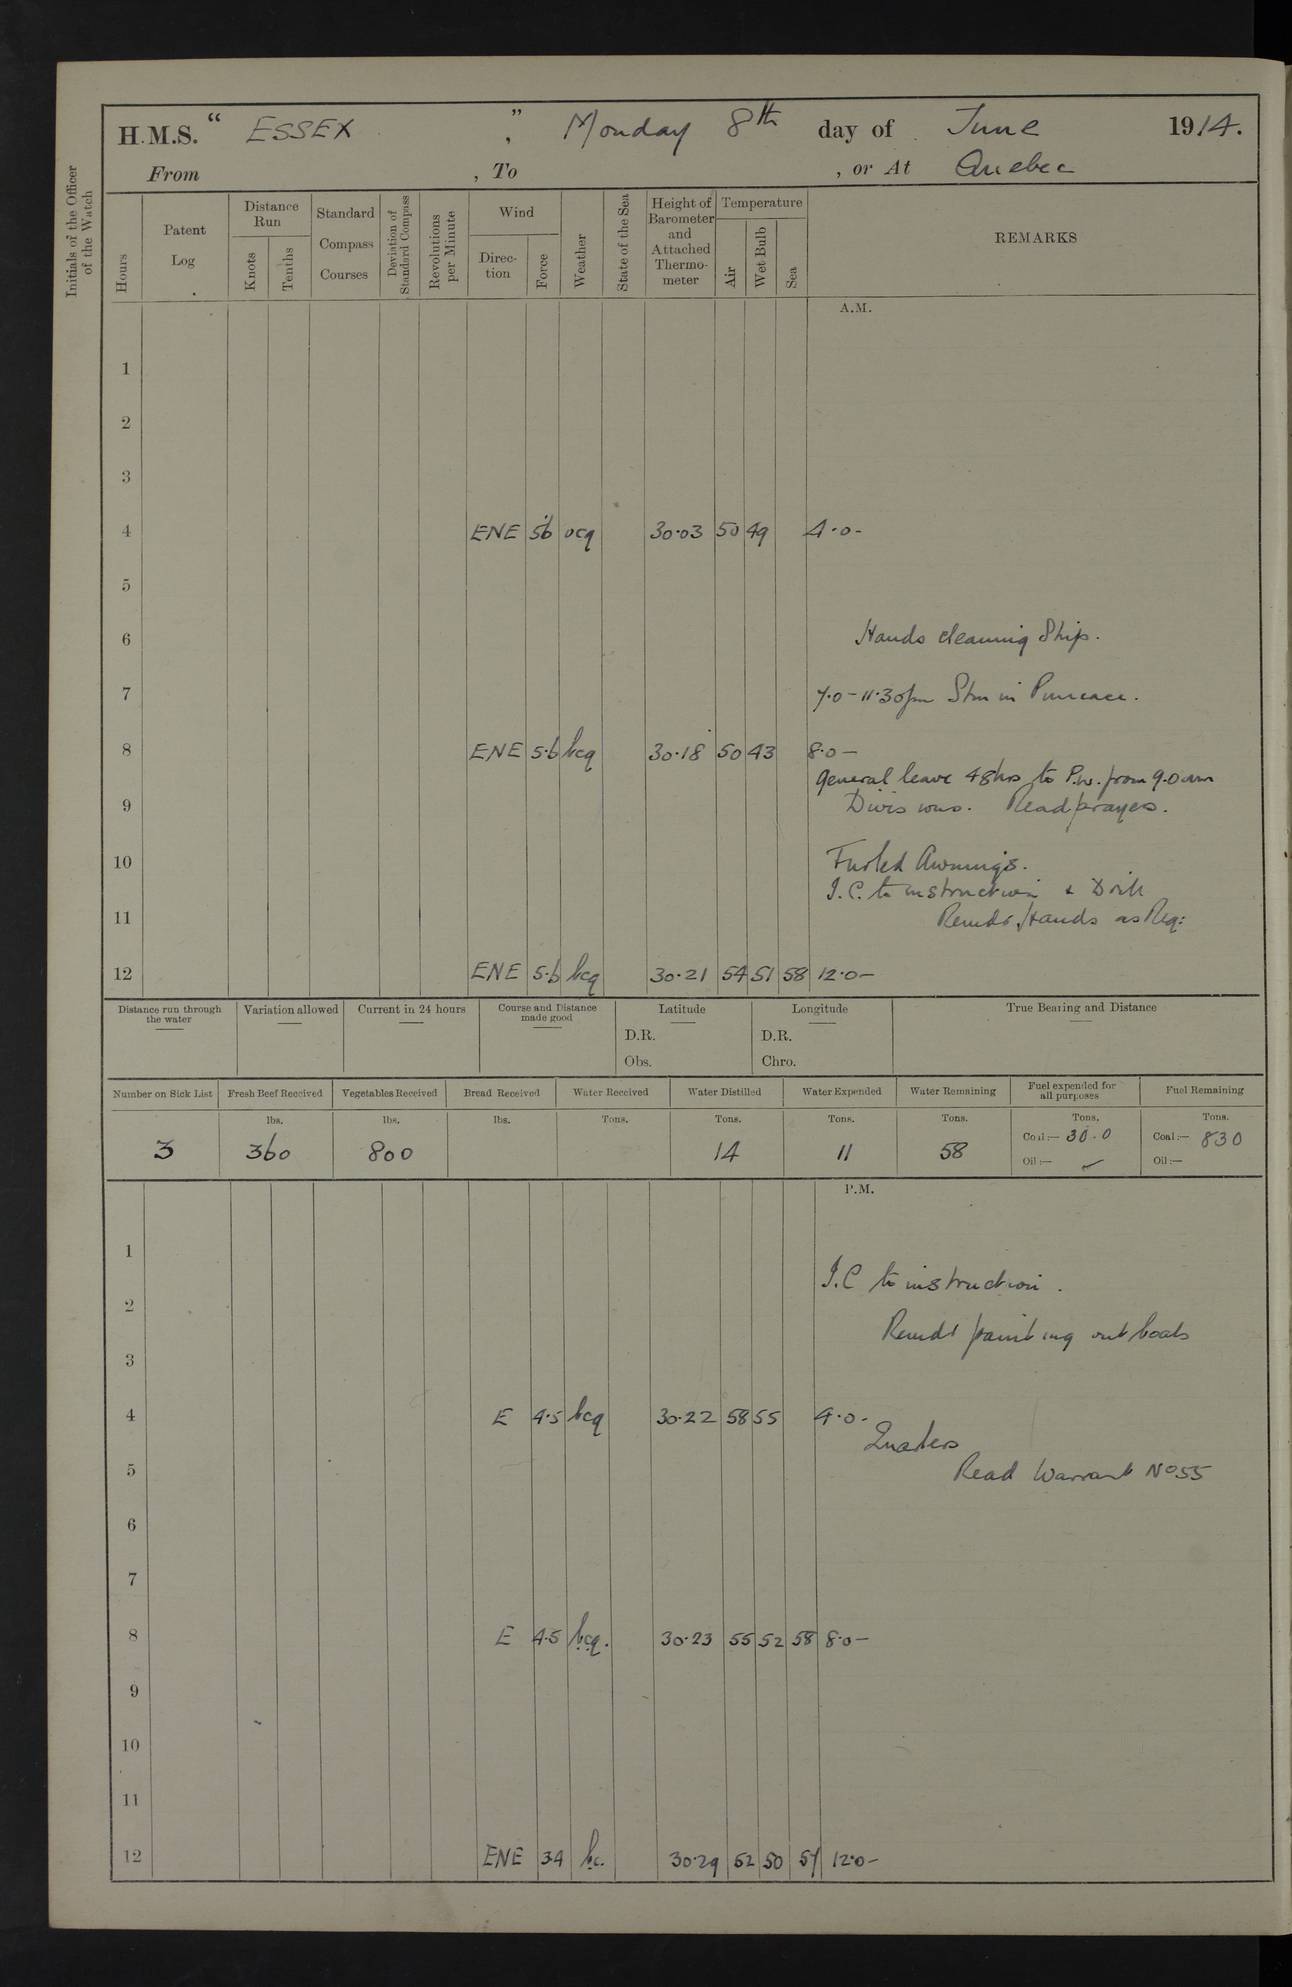 H.M.S. " ESSEX ", Monday 8th day of June 1914.
From , To , or At Quebec
Initials of the Officer of the Watch
Hours
Patent Log
Distance Run
Knots
Tenths
Standard Compass Courses
Deviation of Standard Compass
Revolutions per Minute
Wind
Direction
Force
Weather
State of the Sea
Height of Barometer and Attached Thermometer
Temperature
Air
Wet Bulb
Sea
REMARKS
A.M.
1
2
3
4 ENE 5·6 ocq 30·03 50 49 4·0-
5
6 Hands cleaning Ship.
7 7·0-11·30pm Stm in Pinnace.
8 ENE 5·6 bcq 30·18 50 43 8·0-
General leave 48hrs to P.W. from 9.0am
9 Divisions. Read prayers.
10 Furled Awnings.
I.C. to instruction & Drill
11 Remdr. Hands as Req:
12 ENE 5·6 bcq 30·21 54 51 58 12·0-
Distance run through the water
Variation allowed
Current in 24 hours
Course and Distance made good
Latitude
D.R.
Obs.
Longitude
D.R.
Chro.
True Bearing and Distance
Number on Sick List Fresh Beef Received Vegetables Received Bread Received Water Received Water Distilled Water Expended Water Remaining Fuel expended for all purposes Fuel Remaining
lbs. lbs. lbs. Tons. Tons. Tons. Tons. Tons. Tons.
3 360 800 14 11 58 Coal:— 30·0 Coal:— 830
Oil:— ✓ Oil:—
P.M.
1
I.C to instruction.
2
Remdr painting out boats
3
4 E 4·5 bcq 30·22 58 55 4·0-
Quarters
5 Read Warrant No 55
6
7
8 E 4·5 bcq. 30·23 55 52 58 8·0-
9
10
11
12 ENE 34 bc. 30·29 52 50 57 12·0-